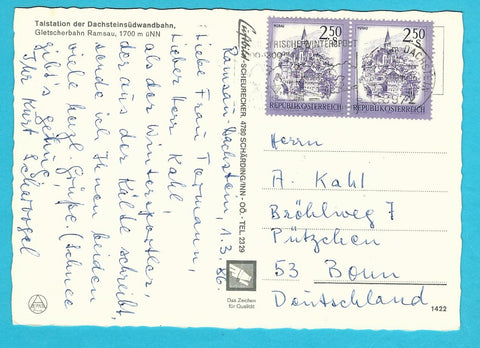 Talstation der Dachsteinsüdwandbahn,
Gletscherbahn Ramsau, 1700 m üNN
Ramsau-Dachstein, 1.3.86.
Liebe Frau
Lieber Herr Kahl,
als der Wintersportler,
der aus der Kälte schreibt,
sende ich Ihnen beiden
viele herzl. Grüße. (Schnee
gibt's genug
Ihr Kurt
Luftbild-SCHEURECKER, 4780 SCHÄRDING/INN - OÖ. - TEL 2329
Das Zeichen
für Qualität
2.50
MURAU
REPUBLIK ÖSTERREICH
2.50
MURAU
REPUBLIK ÖSTERREICH
Herrn
A. Kahl
Bröhlweg 7
Pützchen
53 Bonn
Deutschland
1422